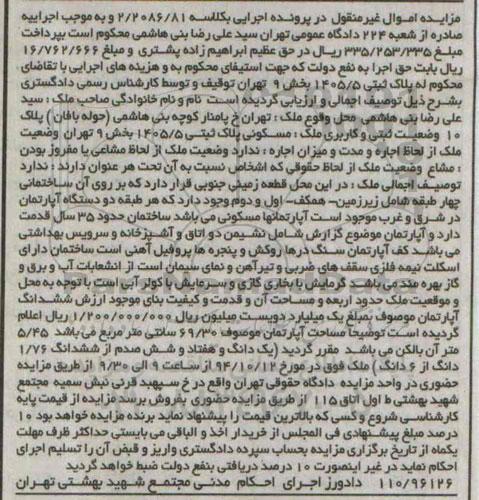 مزایده اموال غیرمنقول در پرونده اجرایی بکلاسه ۲/۲۰۸۶/۸۱ و به موجب اجراییه
صادره از شعبه ۲۲۴ دادگاه عمومی تهران سید علی رضا بنی هاشمی محکوم است بپرداخت
مبلغ ۳۳۵/۲۵۳/۳۳۵ ریال در حق عظیم ابراهیم زاده پشتری و مبلغ ۱۶/۷۶۲/۶۶۶
ریال بابت حق اجرا به نفع دولت که جهت استیفای محکوم به و هزینه های اجرایی با تقاضای
محکوم له پلاک ثبتی ۱۴۰۵/۵ بخش ۹ تهران توقیف و توسط کارشناس رسمی دادگستری
بشرح ذیل توصیف اجمالی و ارزیابی گردیده است نام و نام خانوادگی صاحب ملک : سید
علی رضا بنی هاشمی محل وقوع ملک : تهران خ پامنار کوچه بنی هاشمی (حوله بافان) پلاک
۱۰ وضعیت ثبتی و کاربری ملک : مسکونی پلاک ثبتی ۱۴۰۵/۵ بخش ۹ تهران وضعیت
ملک از لحاظ اجاره و مدت و میزان اجاره : ندارد وضعیت ملک از لحاظ مشاعی یا مفروز بودن
: مشاع وضعیت ملک از لحاظ حقوقی که اشخاص نسبت به آن تحت هر عنوان دارند : ندارد
توصیف اجمالی ملک : در این محل قطعه زمینی جنوبی قرار دارد که بر روی آن ساختمانی
چهار طبقه شامل زیرزمین- همکف- اول و دوم وجود دارد که هر طبقه دو دستگاه آپارتمان
در شرق و غرب موجود است آپارتمانها مسکونی می باشد ساختمان حدود ۳۵ سال قدمت
دارد و آپارتمان موضوع گزارش شامل نشیمن دو اتاق و آشپزخانه و سرویس بهداشتی
می باشد کف آپارتمان سنگ درها روکش و پنجره ها پروفیل آهنی است ساختمان دارای
اسکلت نیمه فلزی سقف های ضربی و تیرآهن و نمای سیمان است از انشعابات آب و برق و
گاز بهره مند می باشد گرمایش با بخاری گازی و سرمایش با کولر آبی است با توجه به محل
و موقعیت ملک حدود اربعه و مساحت آن و قدمت و کیفیت بنای موجود ارزش ششدانگ
آپارتمان موصوف بمبلغ یک میلیارد دویست میلیون ریال ۱/۲۰۰/۰۰۰/۰۰۰ ریال اعلام
گردیده است توضیحاً مساحت آپارتمان موصوف ۶۹/۳۰ سانتی متر مربع می باشد ۵/۴۵
متر آن بالکن می باشد مقرر گردید (یک دانگ و هفتاد و شش صدم از ششدانگ ۱/۷۶
دانگ از ۶ دانگ) ملک فوق در مورخ ۹۴/۱۰/۱۲ از ساعت ۹ الی ۹/۳۰ از طریق مزایده
حضوری در واحد مزایده دادگاه حقوقی تهران واقع در خ سپهبد قرنی نبش سمیه مجتمع
شهید بهشتی ط اول اتاق ۱۱۵ از طریق مزایده حضوری بفروش برسد مزایده از قیمت پایه
کارشناسی شروع و کسی که بالاترین قیمت را پیشنهاد نماید برنده مزایده خواهد بود ۱۰
درصد مبلغ پیشنهادی فی المجلس از خریدار اخذ و الباقی می بایستی حداکثر ظرف مهلت
یکماه از تاریخ برگزاری مزایده بحساب سپرده دادگستری واریز و قبض آن را تسلیم اجرای
احکام نماید در غیر اینصورت ۱۰ درصد دریافتی بنفع دولت ضبط خواهد گردید
۱۱۰/۹۶۱۲۶ دادورز اجرای احکام مدنی مجتمع شهید بهشتی تهران